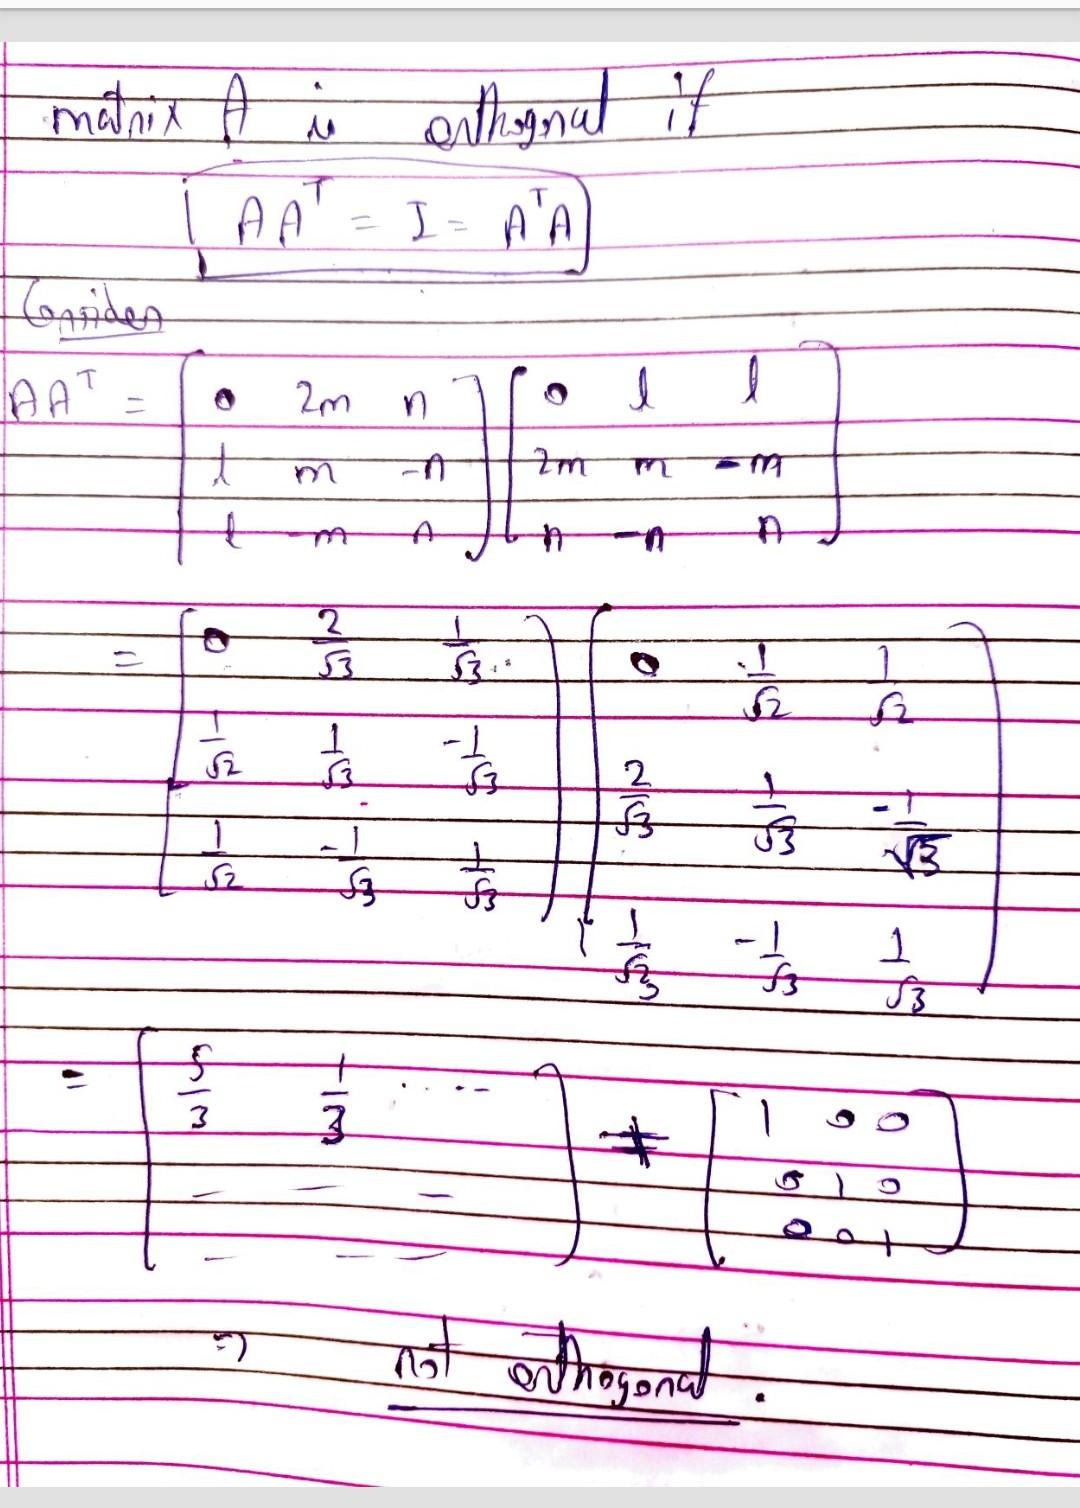 matrix A is orthogonal if
AAᵀ = I = AᵀA
Consider
AAᵀ = [0 2m n; l m -n; l -m n] [0 l l; 2m m -m; n -n n]
= [0 2/√3 1/√3; 1/√2 1/√3 -1/√3; 1/√2 -1/√3 1/√3] [0 1/√2 1/√2; 2/√3 1/√3 -1/√3; 1/√3 -1/√3 1/√3]
= [5/3 1/3 ....; - - -; - - -] ≠ [1 0 0; 0 1 0; 0 0 1]
⇒ not orthogonal.